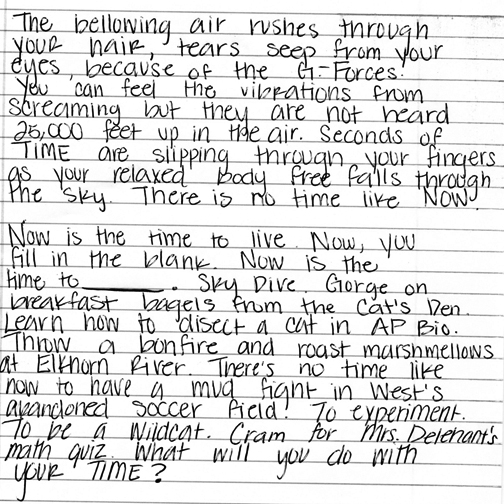 The bellowing air rushes through
your hair, tears seep from your
eyes, because of the G-Forces.
You can feel the vibrations from
screaming but they are not heard
25,000 feet up in the air. Seconds of
TIME are slipping through your fingers
as your relaxed body free falls through
the sky. There is no time like NOW.
Now is the time to live. Now, you
fill in the blank. Now is the
time to______. Sky Dive. Gorge on
breakfast bagels from the Cat's Den.
Learn how to disect a cat in AP Bio.
Throw a bonfire and roast marshmellows
at Elkhorn River. There's no time like
now to have a mud fight in West's
abandoned soccer field! To experiment.
To be a Wildcat. Cram for Mrs. Delehant's
math quiz. What will you do with
your TIME?